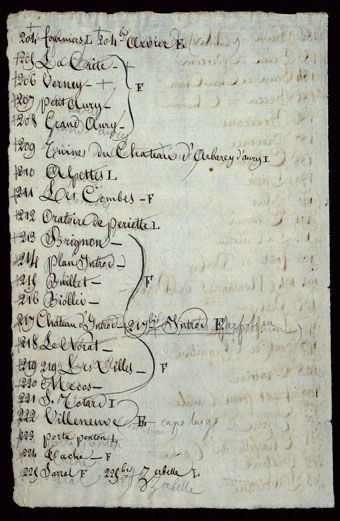 204 fourniers L 204 bis Arvier E
205 La Crête -
206 Verney - F
207 petit Avry -
208 Grand Avry -
209 Ruines du Chateau d'Arberey d'avry I
210 Alpettes L
211 Les Combes - F
212 Oratoire de periette L
213 Brignon -
214 Plan Introd -
215 Buillet - F
216 Biollei -
217 Château d'Introd - 217 bis Introd E
218 Le Norat -
219 Les Villes - F
220 Mecos -
221 S. Notard I
222 Villeneuve E capo luogo
223 porta ponton L
224 Clache - F
225 Sarral F 225 bis Zerbelle L
Zerbelle